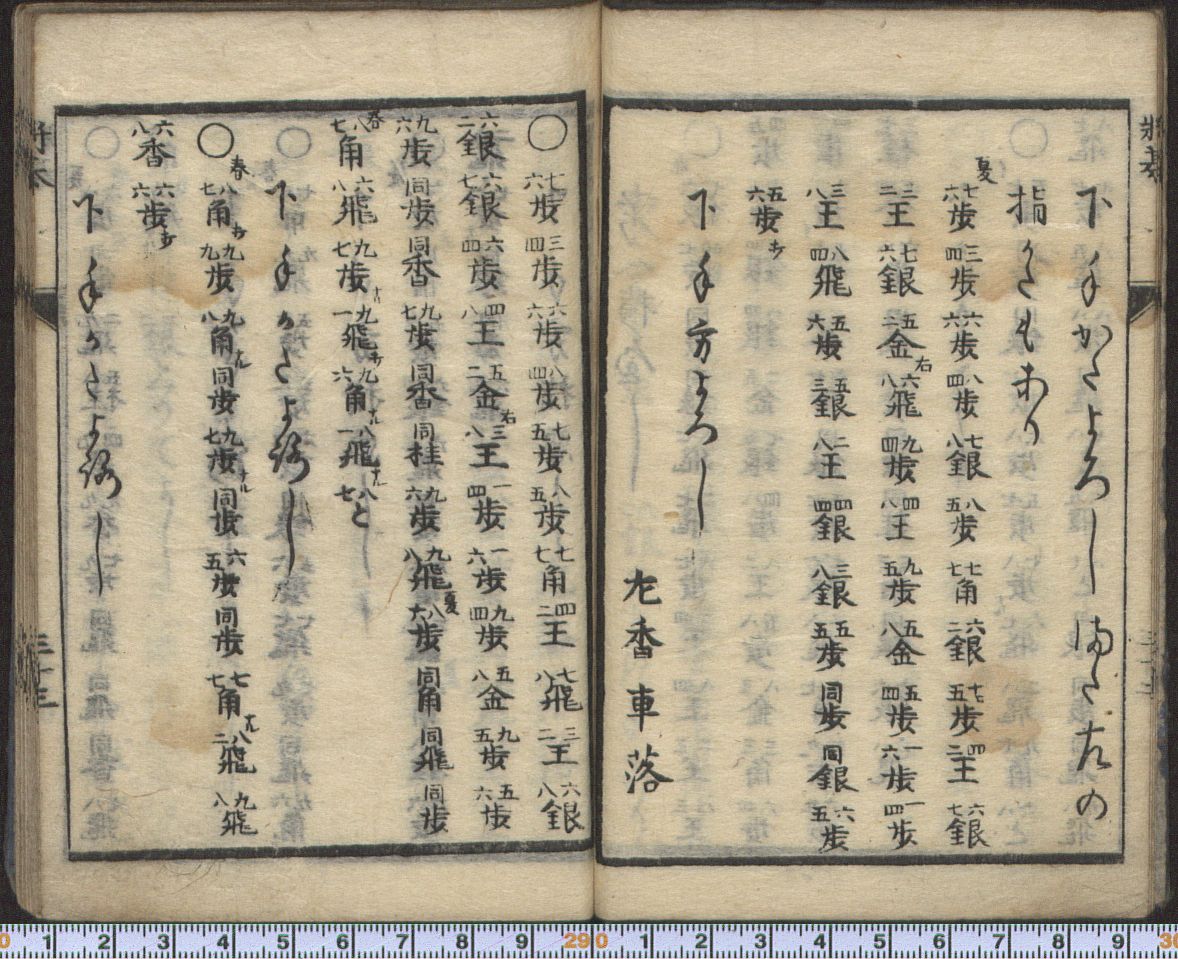 下手かたよろしまた左の
指かたもあり
夏 七六歩 三四歩 六六歩 八四歩 七八銀 八五歩 七七角 六二銀 七五歩 四二王 六七銀
三二王 七六銀 五二金右 六八飛 九四歩 四八王 九五歩 五八金 五四歩 一六歩 一四歩
三八王 八四飛 五六歩 五三銀 二八王 四四銀 三八銀 五五歩 同歩 同銀 六五歩
五六歩打
下手方よろし
左香車落
〇 七六歩 三四歩 六六歩 八四歩 七五歩 八五歩 七七角 四二王 七八飛 三二王 六八銀
六二銀 六七銀 六四歩 四八王 五二金右 三八王 一四歩 一六歩 九四歩 五八金 九五歩 五六歩
九六歩 同歩 同香 九七歩 同香 同桂 九六歩 九八飛 夏 八六歩 同角 同飛 同歩
春 八七角 六八飛 九七歩ナル 九一飛打 九六角ナル 八一飛ナル 八七と
下手かたよろし
〇 春 八七角打 九九歩 九八角ナル 同歩 九七歩ナル 同歩 六五歩 同歩 七七角ナル 八二飛 九八飛
六八香 六六歩打
下手かたよろし